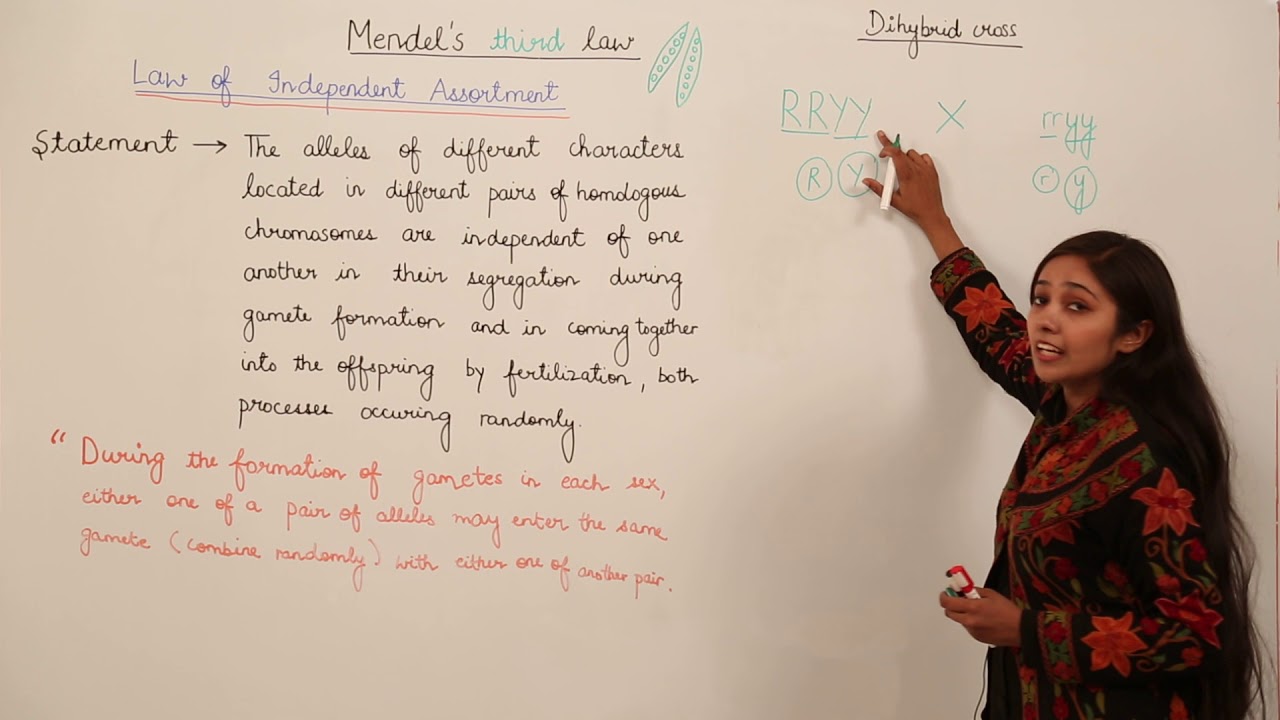 Mendel's third law
Law of Independent Assortment
Statement → The alleles of different characters
located in different pairs of homologous
chromosomes are independent of one
another in their segregation during
gamete formation and in coming together
into the offspring by fertilization, both
processes occuring randomly.
“ During the formation of gametes in each sex,
either one of a pair of alleles may enter the same
gamete (combine randomly) with either one of another pair.
Dihybrid cross
RRYY X rryy
R Y r y